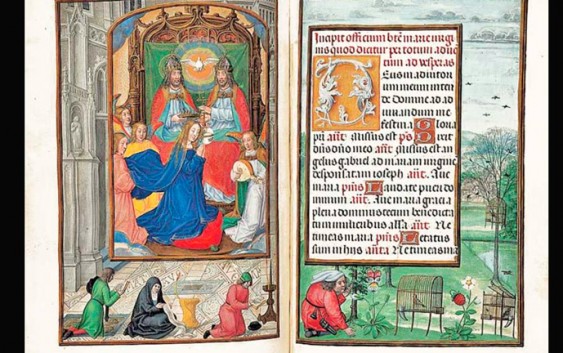 Incipit officium bte marie virgi
nis quod dicatur per totum aduē
tum ad vesperas
Deus in adiutori
um meum inten
de Domine ad ad
iuuandum me
festina Gloria
pri añt Missus est ps Dixit
dns dno meo añt Missus est an
gelus gabriel ad mariam virginē
desponsatam ioseph añt Aue
maria Laudate pueri do
minum añt Aue maria gracia
plena dominus tecum benedicta
tu in mulieribus alla añt Ne
timeas maria Letatus
sum in hiis Ne timeas ma